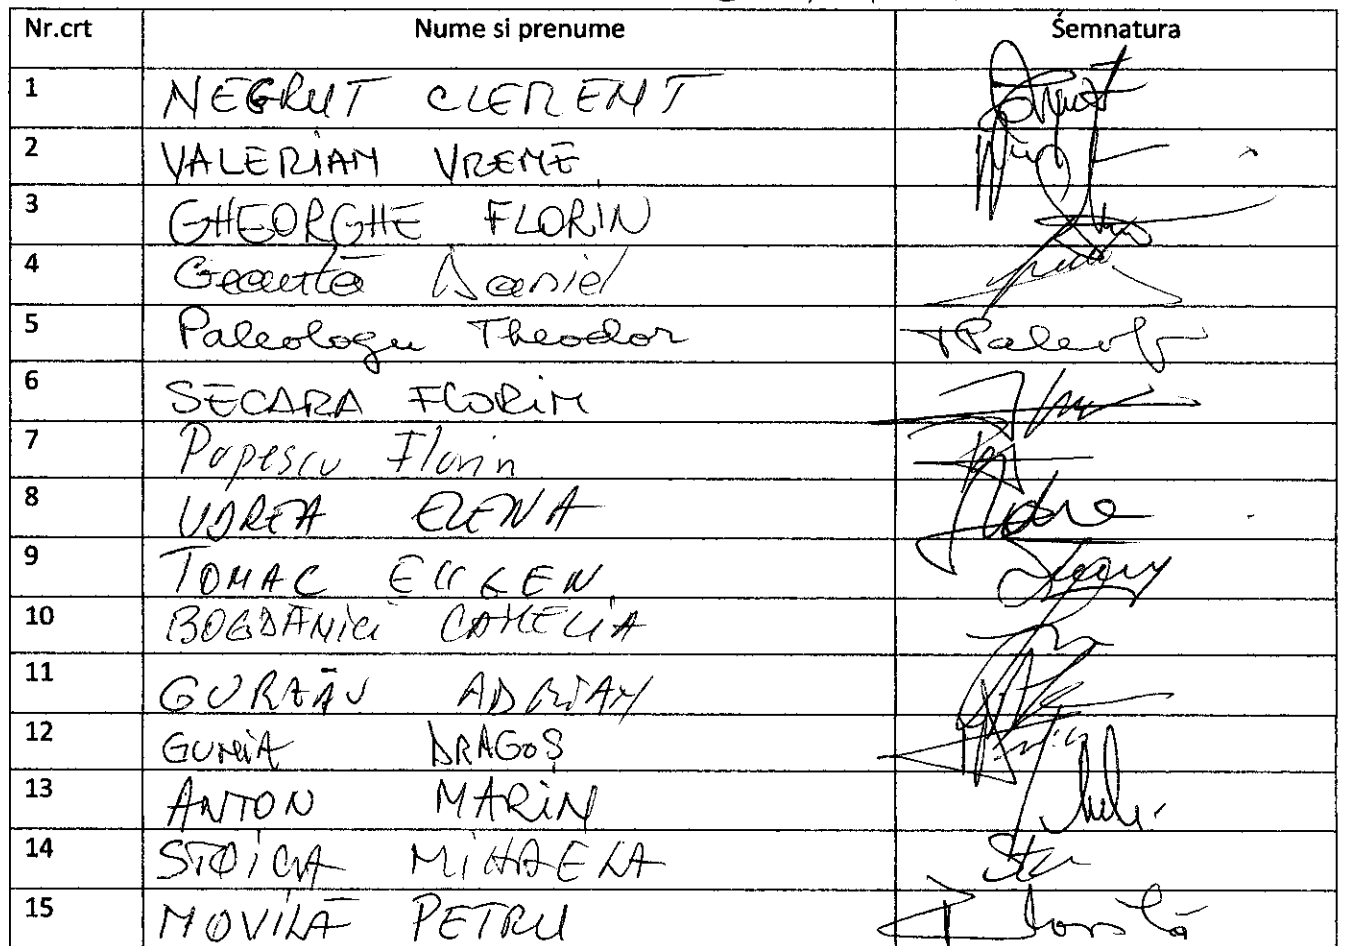 Nr.crt Nume si prenume Semnatura
1 NEGRUT CLEMENT
2 VALERIAN VREME
3 GHEORGHE FLORIN
4 Geantă Daniel
5 Paleologu Theodor TPaleolo
6 SECARA FLORIN
7 Popescu Florin
8 UDREA ELENA
9 TOMAC EUGEN
10 BOGDĂNICI CAMELIA
11 GURZĂU ADRIAN
12 GUNIA DRAGOȘ
13 ANTON MARIN
14 STOICA MIHAELA
15 MOVILĂ PETRU